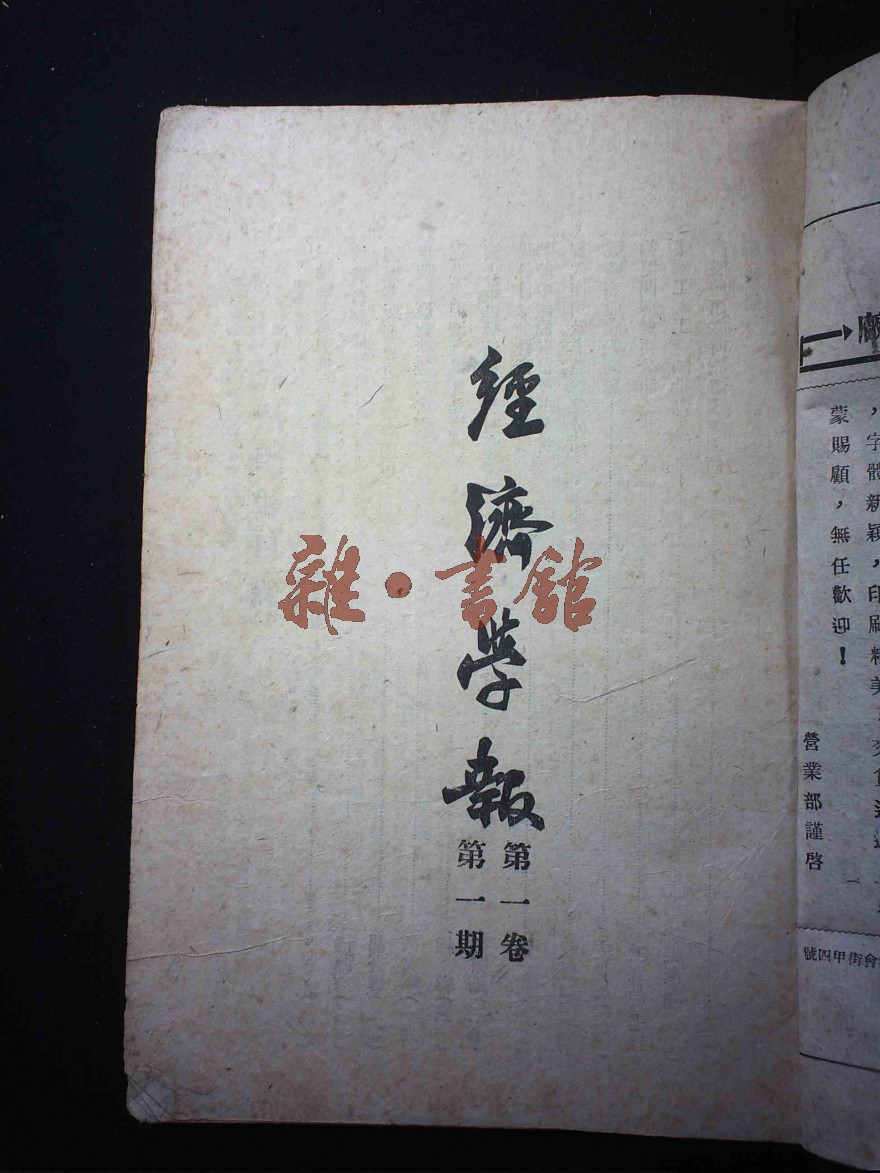 經濟學報
第一卷
第一期
雜·書館
，字體新穎，印刷精美
蒙賜顧，無任歡迎！
營業部謹啓
會街甲四號